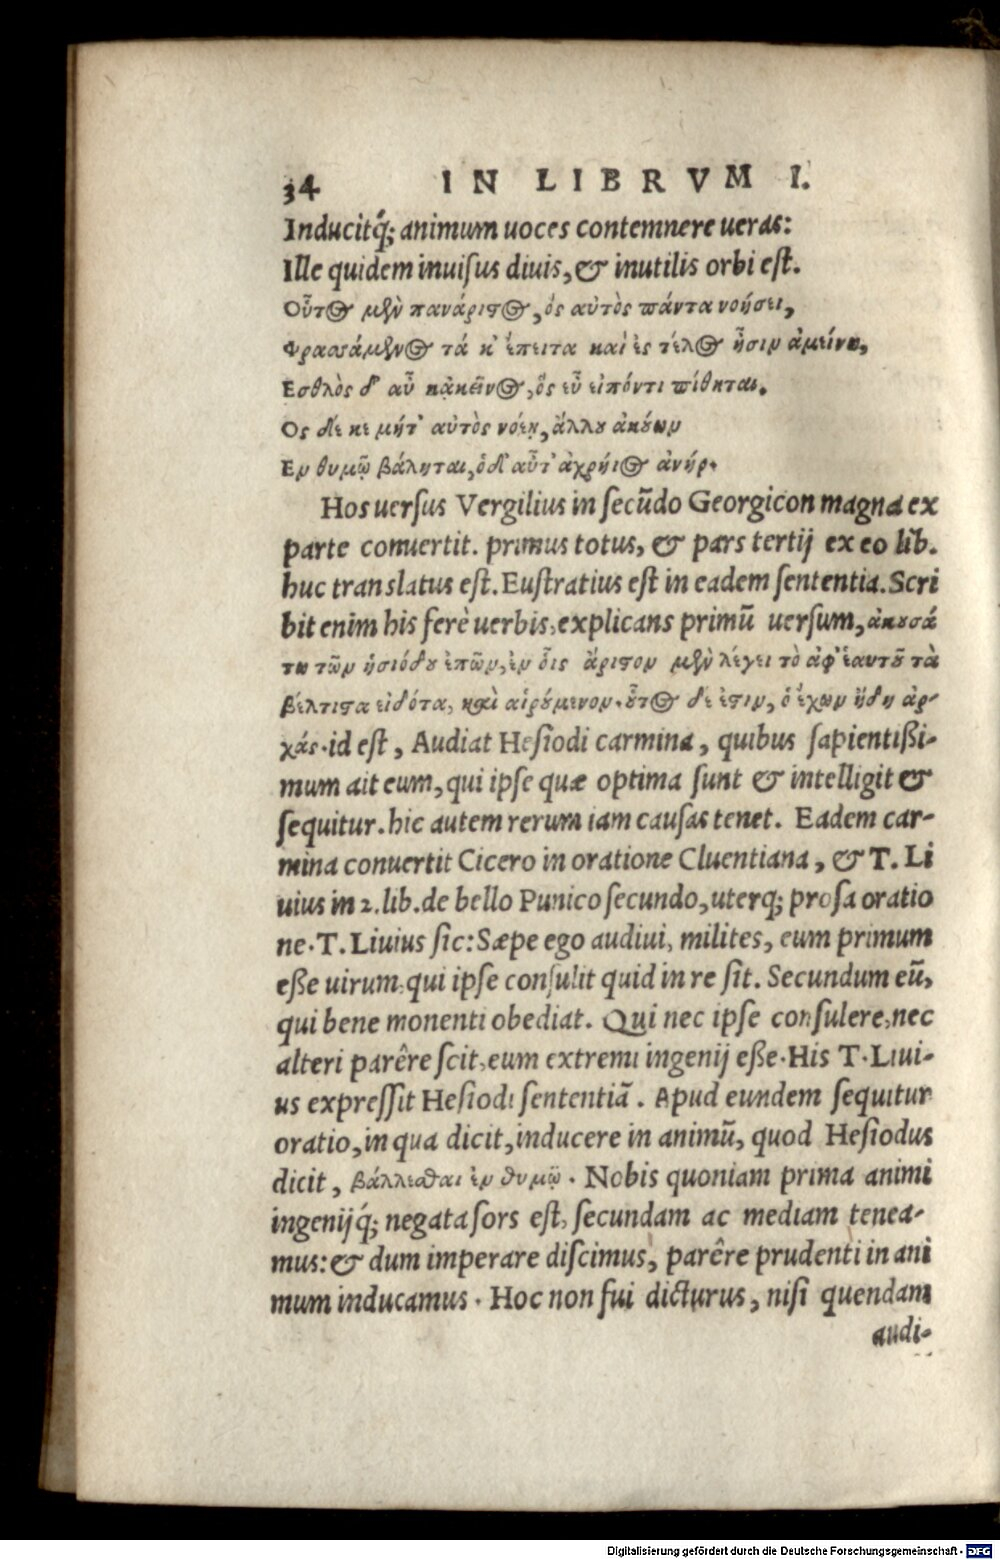 34 IN LIBRVM I.
Inducitq́; animum uoces contemnere ueras:
Ille quidem inuisus diuis, & inutilis orbi est.
Οὗτος μὲν πανάριστος, ὃς αὐτὸς πάντα νοήσει,
Φρασσάμενος τά κ' ἔπειτα καὶ ἐς τέλος ᾖσιν ἀμείνω,
Εσθλὸς δ' αὖ κἀκεῖνος, ὃς εὖ εἰπόντι πίθηται.
Ος δέ κε μήτ' αὐτὸς νόεῃ, ἄλλου ἀκούων
Εν θυμῷ βάληται, ὁ δ' αὖτ' ἀχρήιος ἀνήρ.
Hos uersus Vergilius in secūdo Georgicon magna ex
parte conuertit. primus totus, & pars tertij ex eo lib.
huc translatus est. Eustratius est in eadem sententia. Scri
bit enim his ferè uerbis, explicans primū uersum, ἀκουσά
τω τῶν ἡσιόδου ἐπῶν, ἐν οἷς ἄριστον μὲν λέγει τὸ ἀφ' ἑαυτοῦ τὰ
βέλτιστα εἰδότα, καὶ αἱρούμενον. οὗτος δέ ἐστιν, ὁ ἔχων ἤδη ἀρ-
χάς. id est, Audiat Hesiodi carmina, quibus sapientißi-
mum ait eum, qui ipse quæ optima sunt & intelligit &
sequitur. hic autem rerum iam causas tenet. Eadem car-
mina conuertit Cicero in oratione Cluentiana, & T. Li
uius in 2. lib. de bello Punico secundo, uterq; prosa oratio
ne. T. Liuius sic: Sæpe ego audiui, milites, eum primum
eße uirum, qui ipse consulit quid in re sit. Secundum eū,
qui bene monenti obediat. Qui nec ipse consulere, nec
alteri parêre scit, eum extremi ingenij eße. His T. Liui-
us expressit Hesiodi sententiā. Apud eundem sequitur
oratio, in qua dicit, inducere in animū, quod Hesiodus
dicit, βάλλεσθαι ἐν θυμῷ. Nobis quoniam prima animi
ingenijq́; negata sors est, secundam ac mediam tenea-
mus: & dum imperare discimus, parêre prudenti in ani
mum inducamus. Hoc non fui dicturus, nisi quendam
audi-
Digitalisierung gefördert durch die Deutsche Forschungsgemeinschaft - DFG